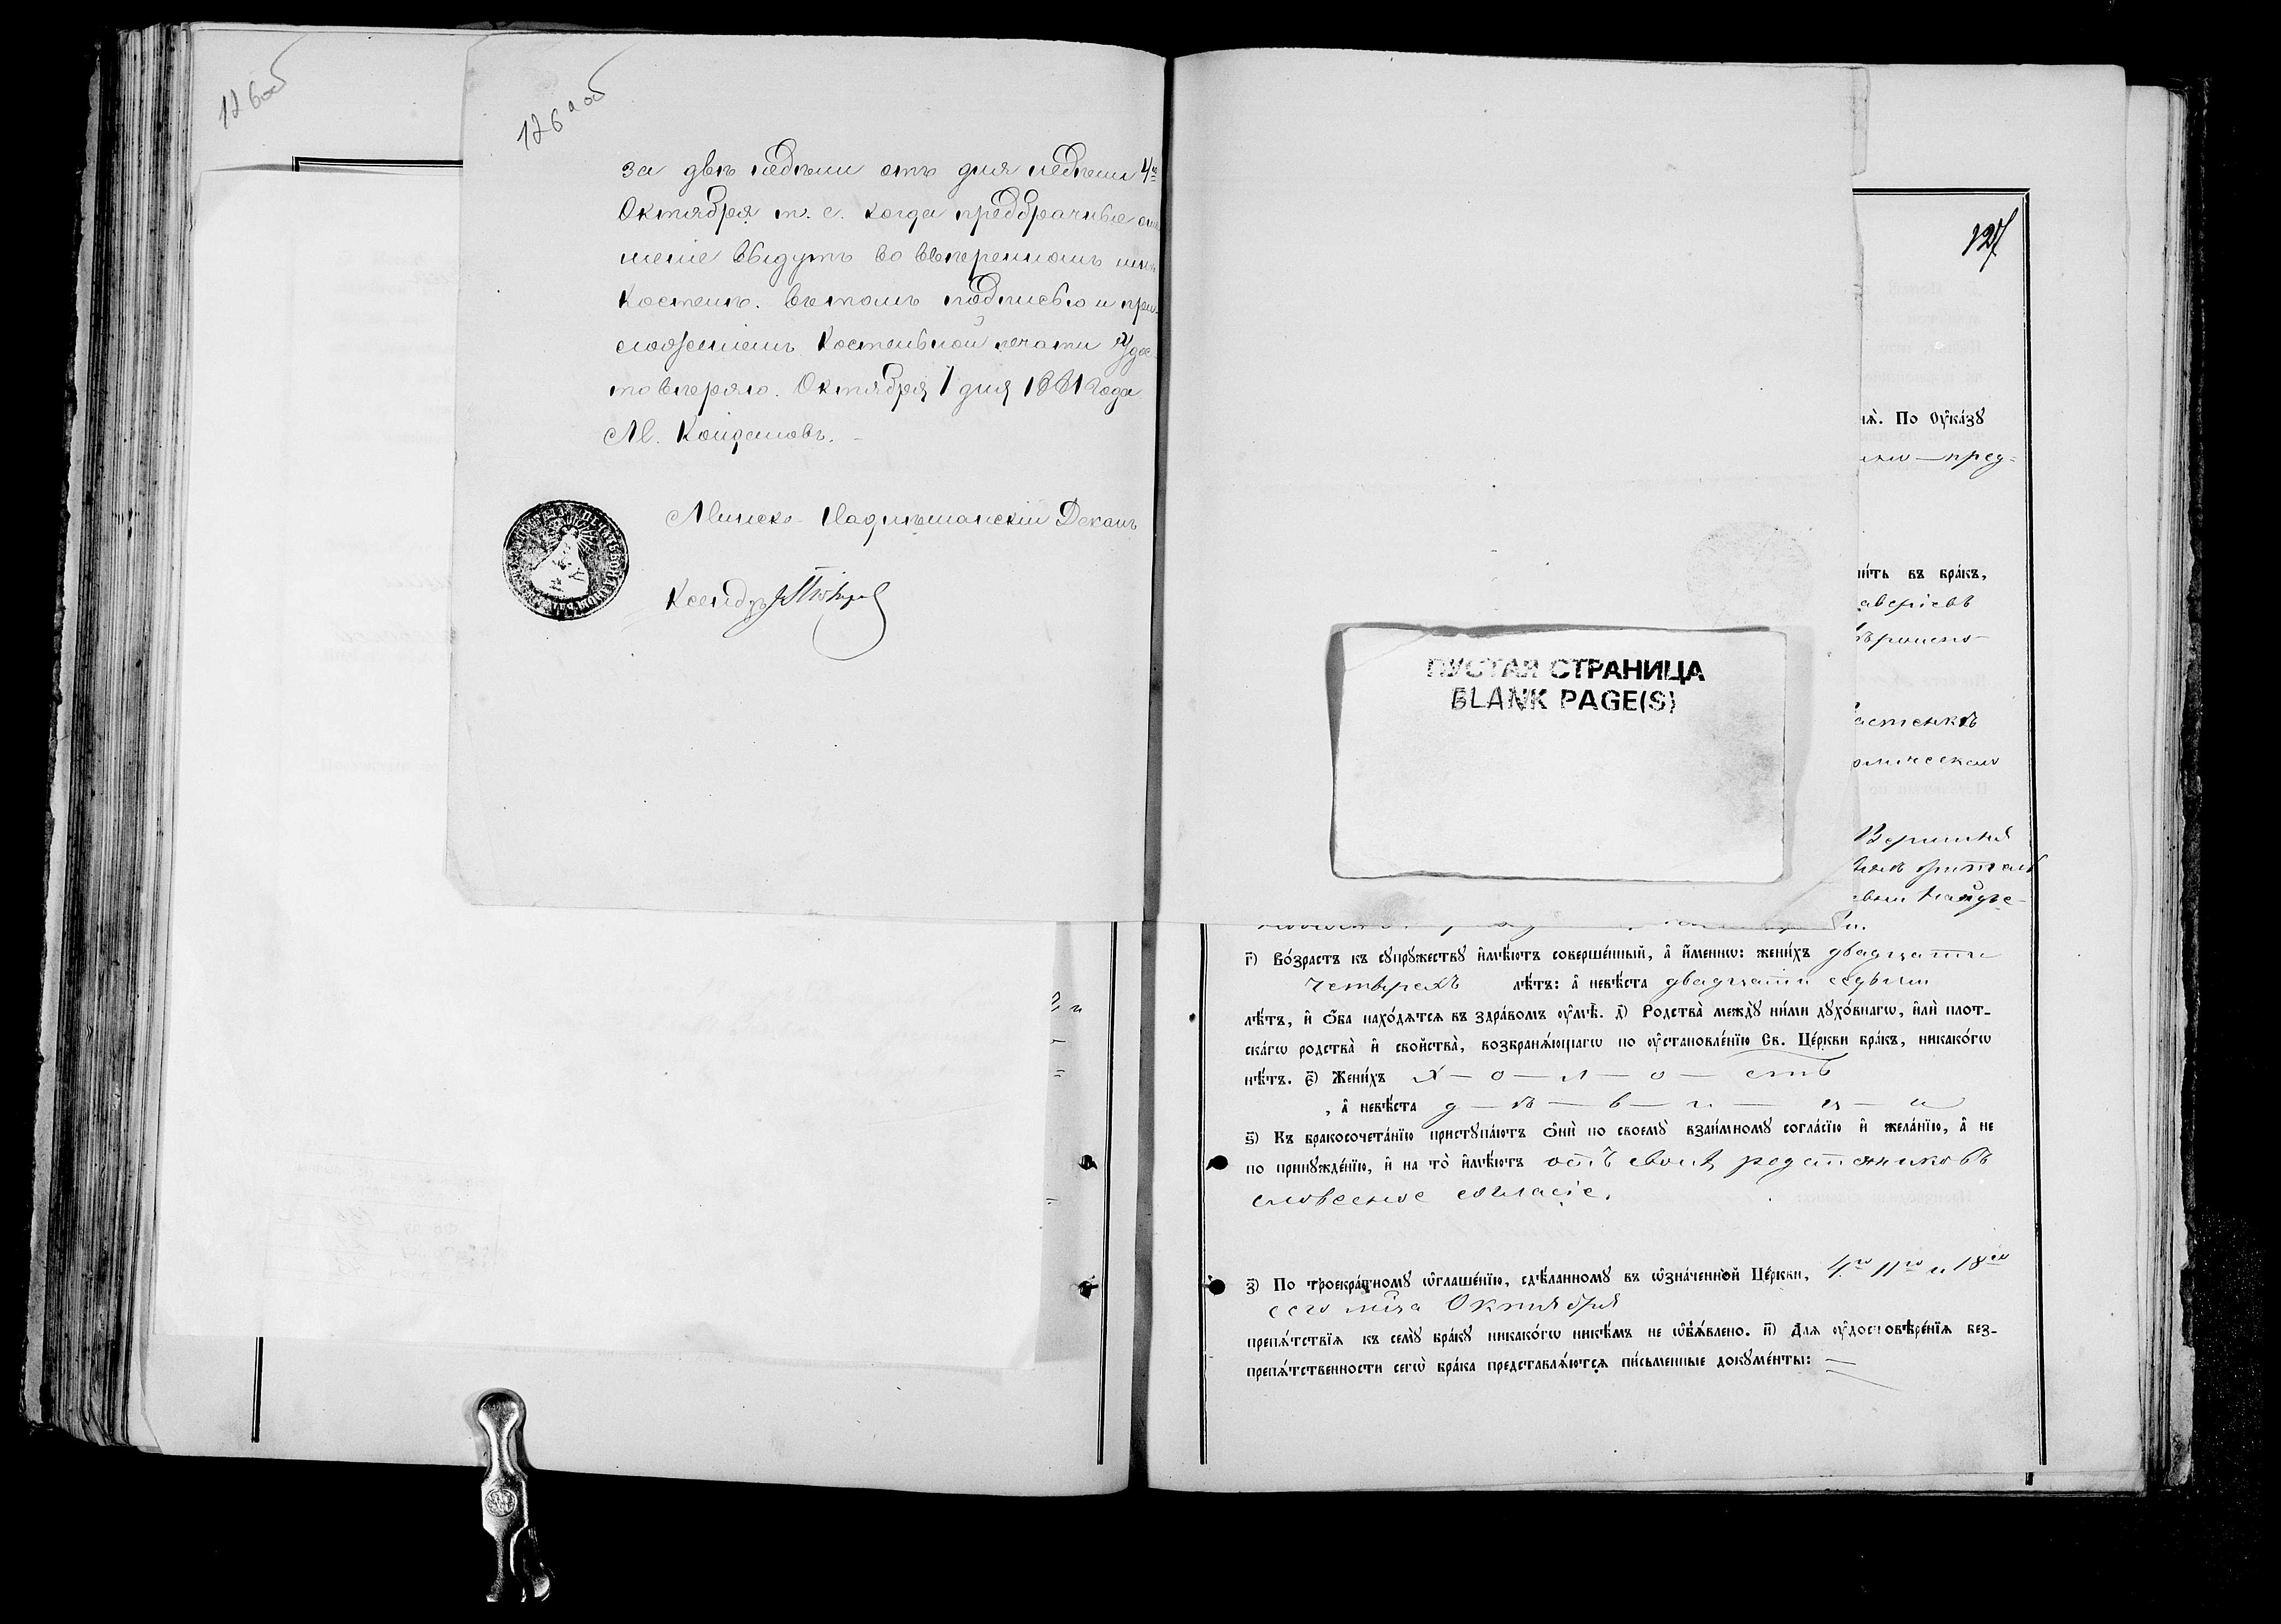 126об
126а об
за двѣ недѣли отъ дня недѣли 4го
Октября т. е. когда предбрачныя
шенія выдутъ во ввѣренномъ мнѣ
Костелѣ. въ томъ подписью и при-
ложеніемъ Костельной печати Удос
товѣряю. Октября 1 дня 1881 года
М. Койдановъ.
Минско-Наднѣманскій Деканъ
Ксендзъ
127
нѧ̀. По Оу҆ка́зꙋ
пред=
ПУСТАЯ СТРАНИЦА
BLANK PAGE(S)
ни́ть въ бра́къ,
аверіевъ
астенкѣ
омическаго
г҃) Во́зрастъ къ сꙋпрꙋ́жествꙋ и҆мѣ́ютъ соверше́нный, а҆ и҆́меннѡ: жени́хъ двадцати
четырехъ лѣ́тъ: а҆ невѣ́ста двадцати седьми
лѣ́тъ, и҆ ѻ҆́ба нахо́дѧтсѧ въ здра́вомъ оу҆мѣ̀. д҃) Родства̀ междꙋ̀ ни́ми дꙋхо́внагѡ, и҆лѝ плот-
ска́гѡ родства̀ и҆ свойства̀, возбранѧ́ющагѡ по оу҆становле́нїю Св. Це́ркви бра́къ, никако́гѡ
нѣ́тъ. є҃) Жени́хъ х — о — л — о — стъ
, а҆ невѣ́ста д — ѣ — в — и — ц — а
ѕ҃) Къ бракосочета́нїю пристꙋпа́ютъ ѻ҆нѝ по своемꙋ̀ взаи́мномꙋ согла́сїю и҆ жела́нїю, а҆ не
по принꙋжде́нїю, и҆ на то̀ и҆мѣ́ютъ отъ своих родственниковъ
словесное согласіе.
з҃) По троекра́тномꙋ ѡ҆глаше́нїю, сдѣ́ланномꙋ въ ѡ҆зна́ченной Це́ркви, 4го 11го и 18го
сего м̃ца Октября
препѧ́тствїѧ къ семꙋ̀ бра́кꙋ никако́гѡ никѣ́мъ не ѡ҆б̾ѧ́влено. и҃) Длѧ оу҆достовѣре́нїѧ без-
препѧ́тственности сегѡ̀ бра́ка представлѧ́ютсѧ пи́сьменные докꙋме́нты: =